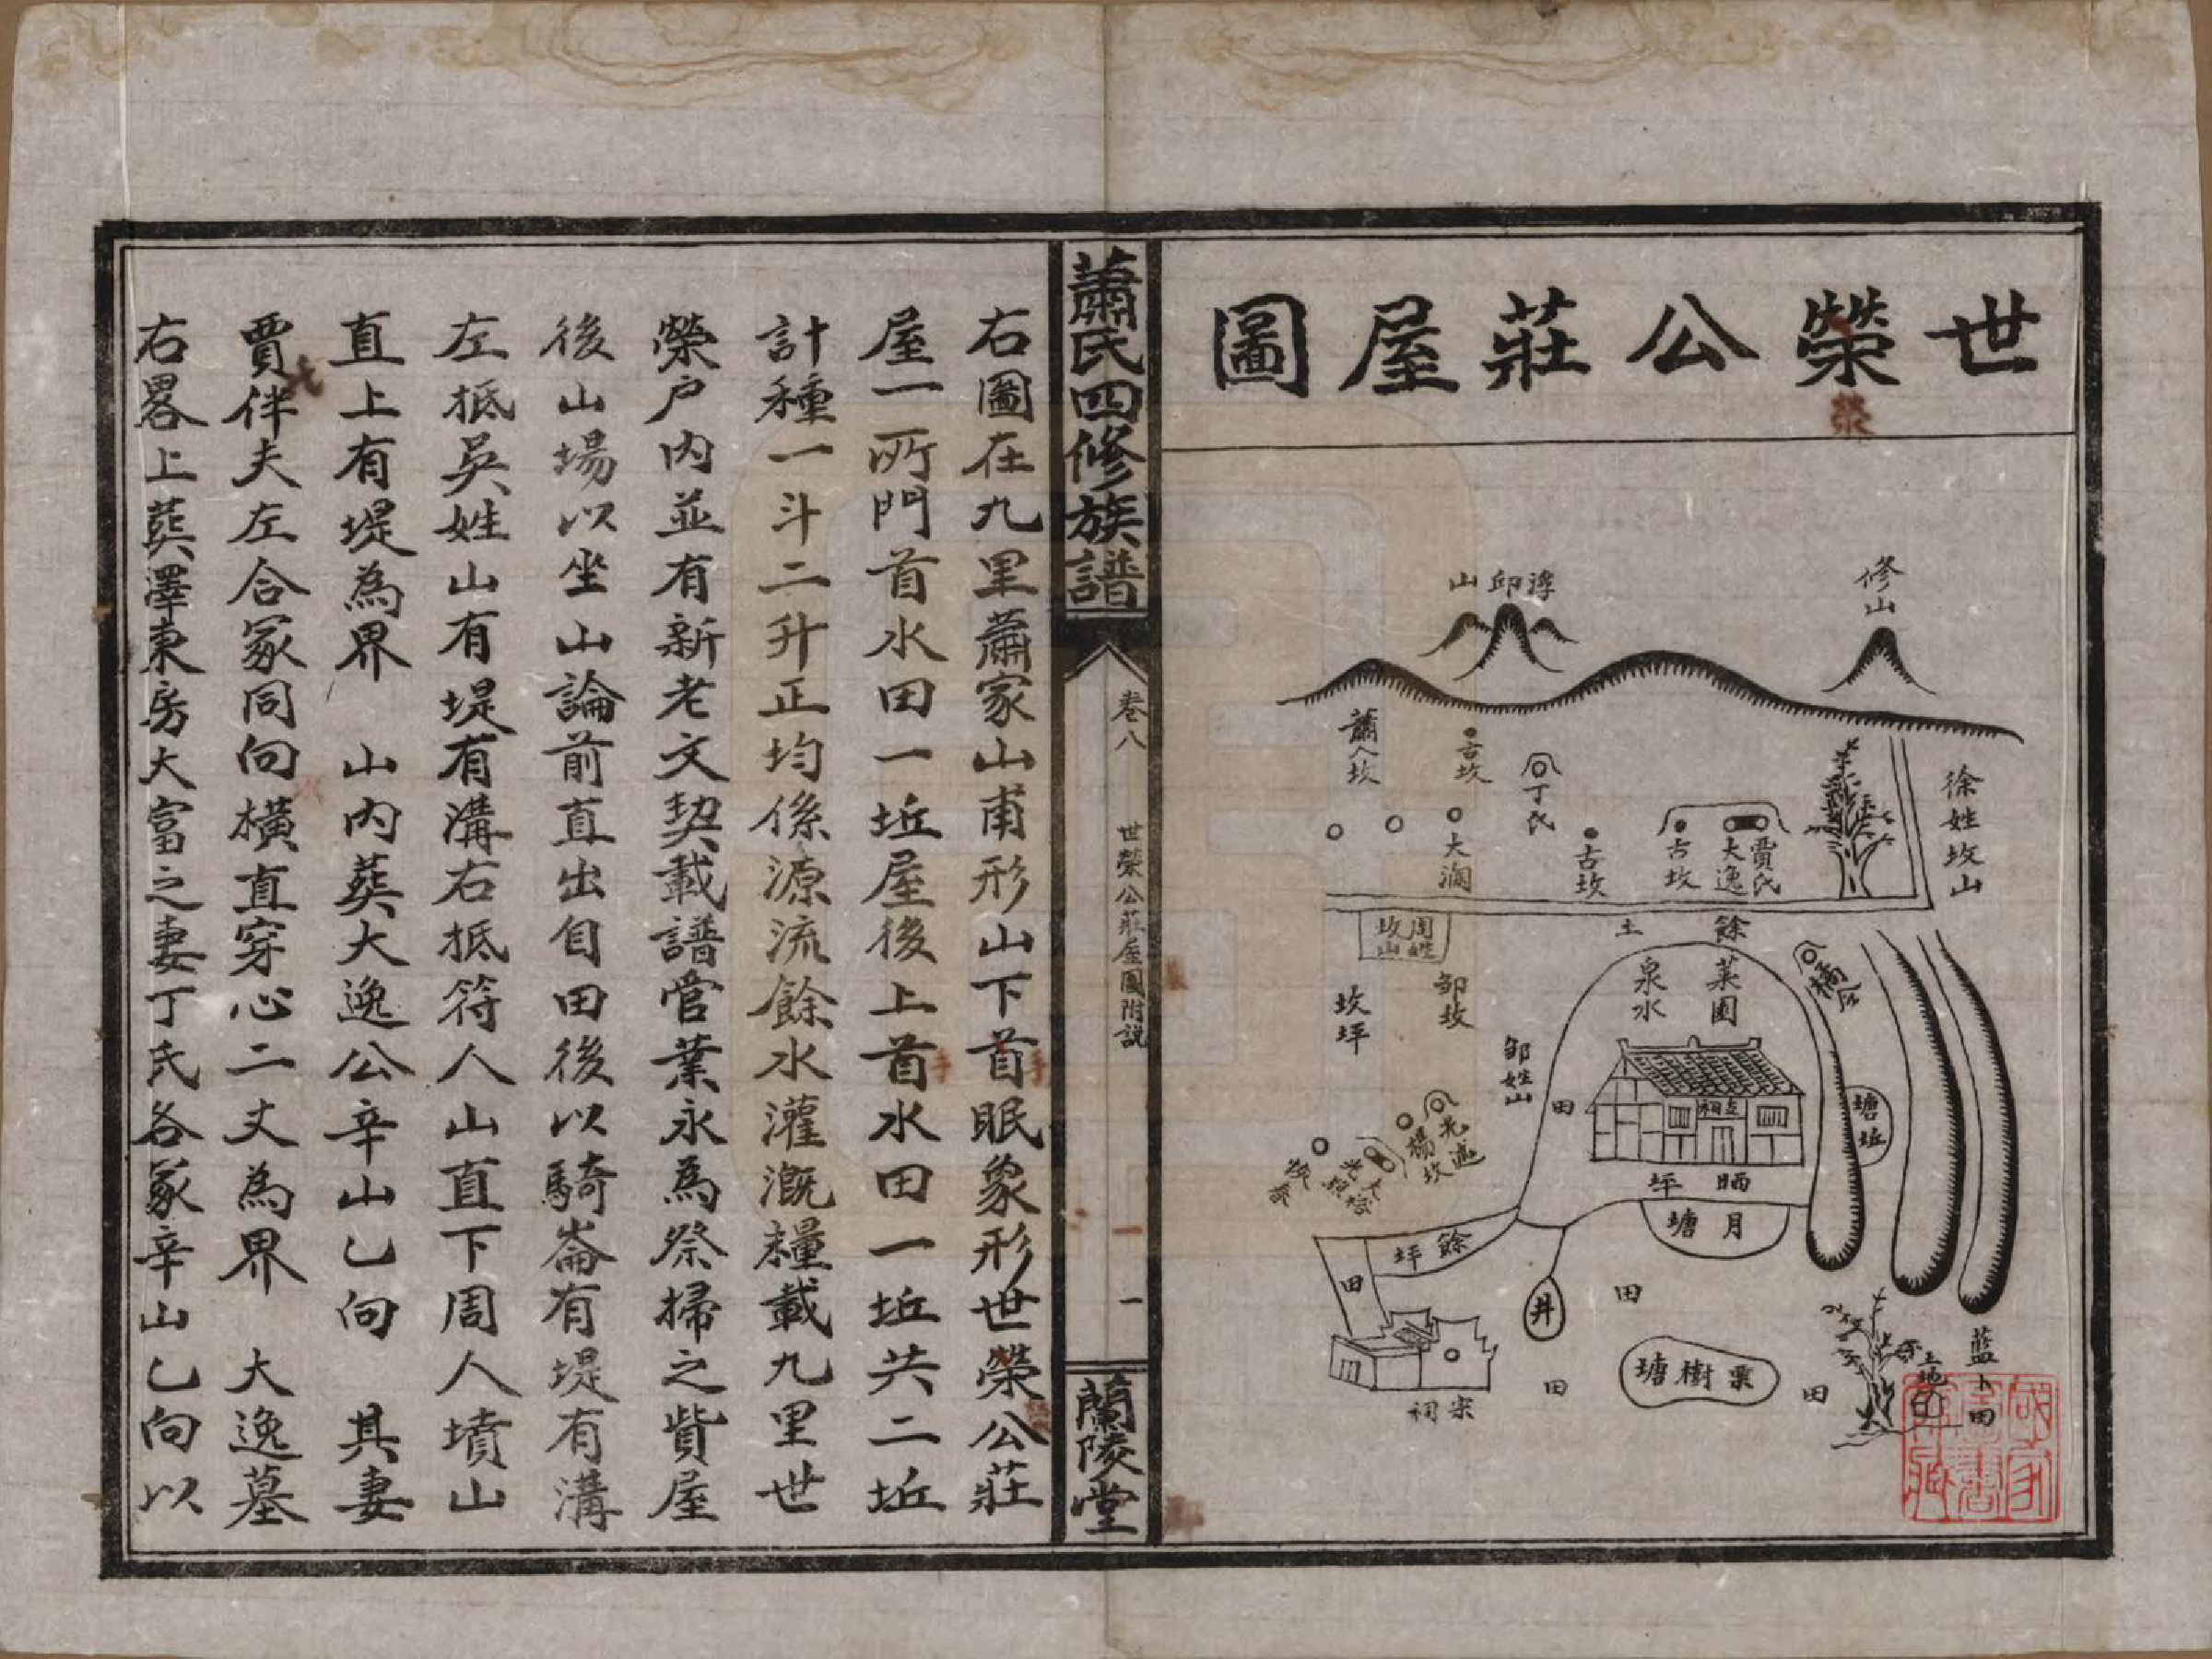 世榮公莊屋圖
榮
修山
浮邱山
徐姓坟山
賈氏
大逸
古坟
古坟
丁氏
古坟
大瀾
蕭人坟
餘土
周姓坟山
菜園
泉水
邹坟
坟坪
邹姓山
田
塘坵
晒坪
月塘
光遞
楊坟
餘坪
田
井
田
栗樹塘
田
田
宗祠
土地
藍卜田
蕭氏四修族譜
卷八
世榮公莊屋圖附說
一
蘭陵堂
右圖在九里蕭家山甫形山下首眠象形世榮公莊
屋一所門首水田一坵屋後上首水田一坵共二坵
計種一斗二升正均係源流餘水灌溉糧載九里世
榮户内並有新老文契載譜管業永為祭掃之貲屋
後山場以坐山論前直出自田後以騎崙有堤有溝
左抵吳姓山有堤有溝右抵符人山直下周人墳山
直上有堤為界 山内葬大逸公辛山乙向 其妻
賈伴夫左合冢同向橫直穿心二丈為界 大逸墓
右畧上葬澤東房大富之妻丁氏各冢辛山乙向以